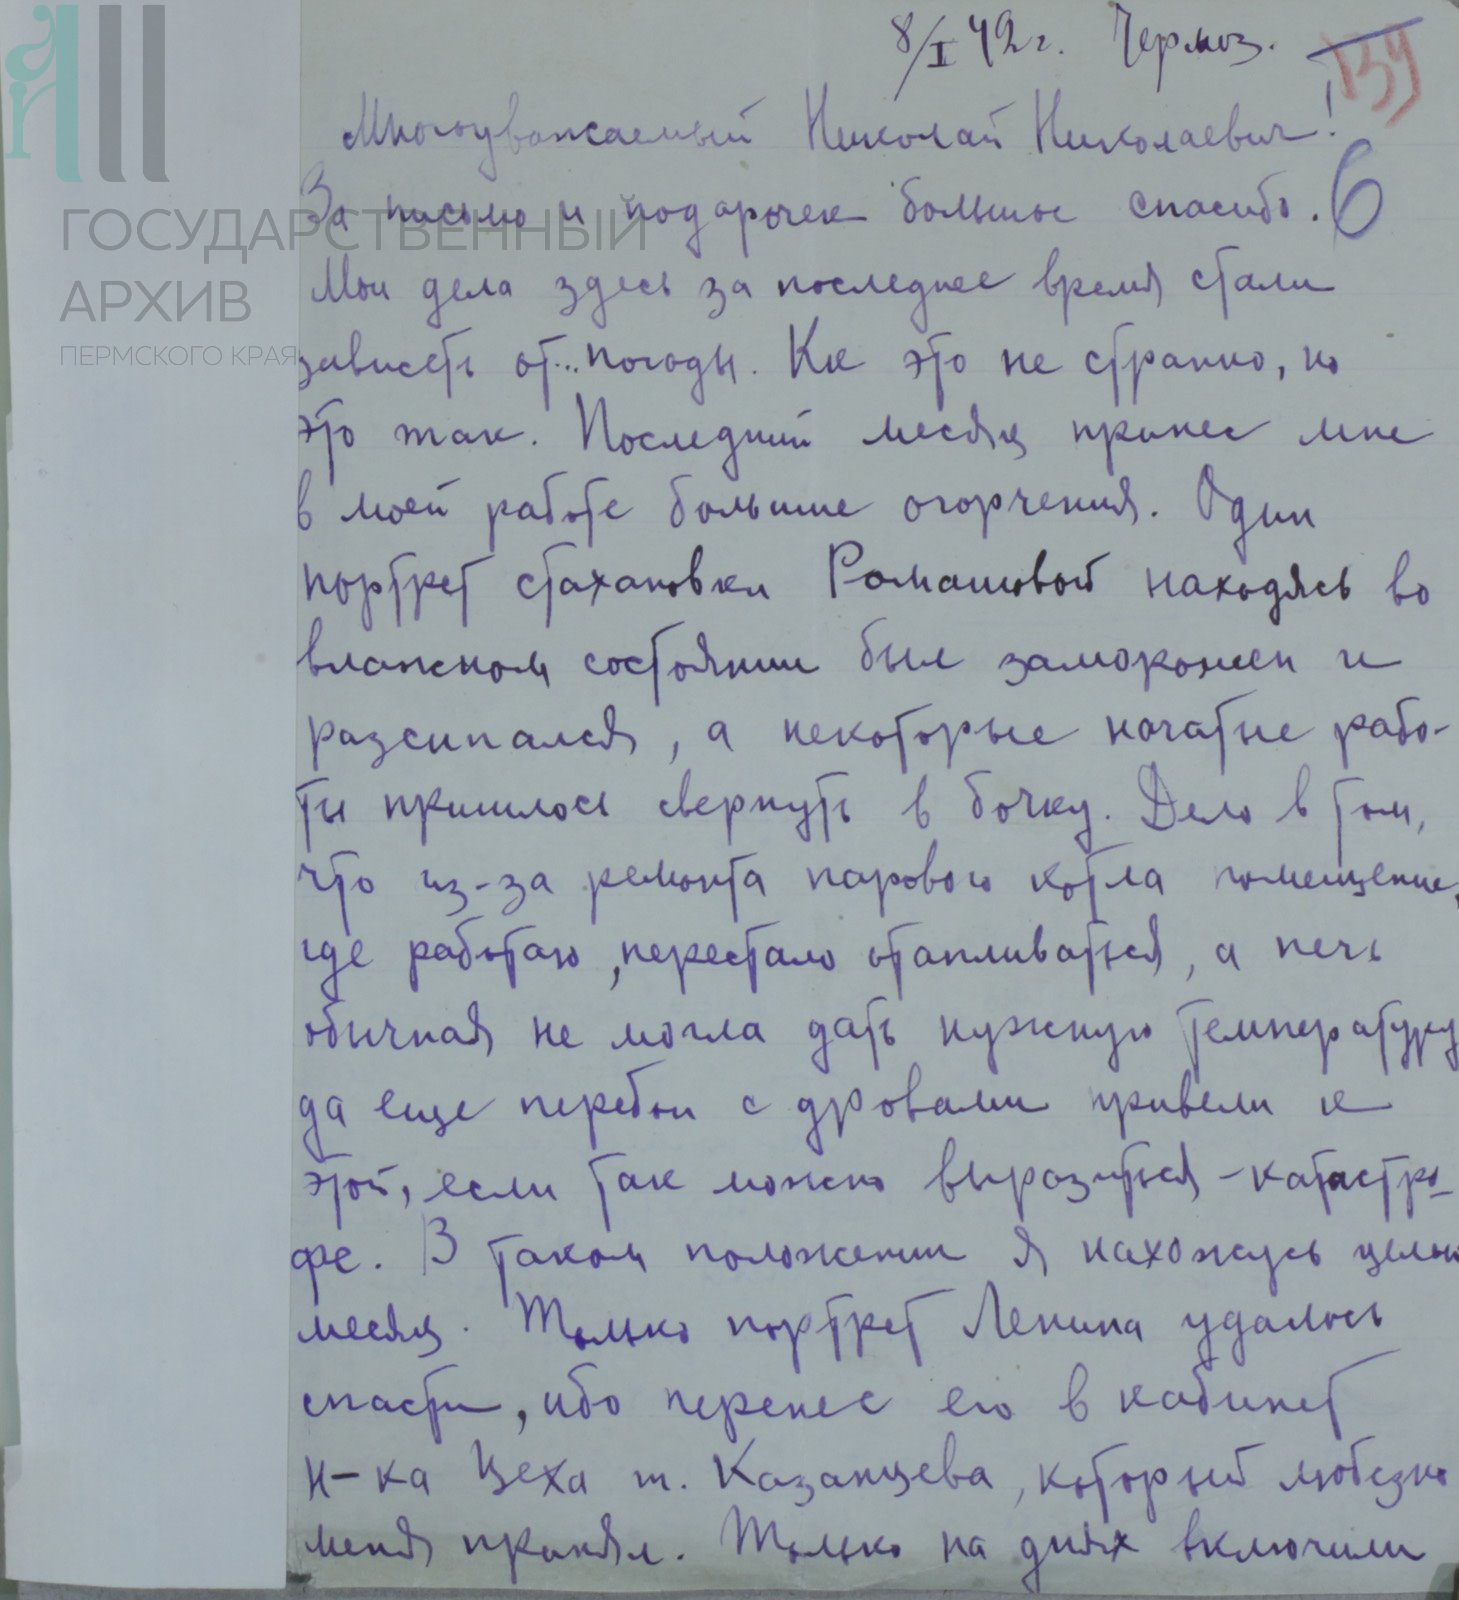 8/I 42 г. Чермоз.
139
Многоуважаемый Николай Николаевич!
За письмо и подарочек большое спасибо.
6
Мои дела здесь за последнее время стали
зависеть от... погоды. Как это не странно, но
это так. Последний месяц принес мне
в моей работе большие огорчения. Один
портрет стахановки Ромашовой находясь во
влажном состоянии был заморожен и
разсыпался, а некоторые начатые рабо-
ты пришлось свернуть в бочку. Дело в том,
что из-за ремонта парового котла помещение,
где работаю, перестало отапливаться, а печь
обычная не могла дать нужную температуру
да еще перебои с дровами привели к
этой, если так можно выразиться - катастро-
фе. В таком положении я нахожусь целый
месяц. Только портрет Ленина удалось
спасти, ибо перенес его в кабинет
н-ка Цеха т. Казанцева, который любезно
меня принял. Только на днях включили
ГОСУДАРСТВЕННЫЙ
АРХИВ
ПЕРМСКОГО КРАЯ